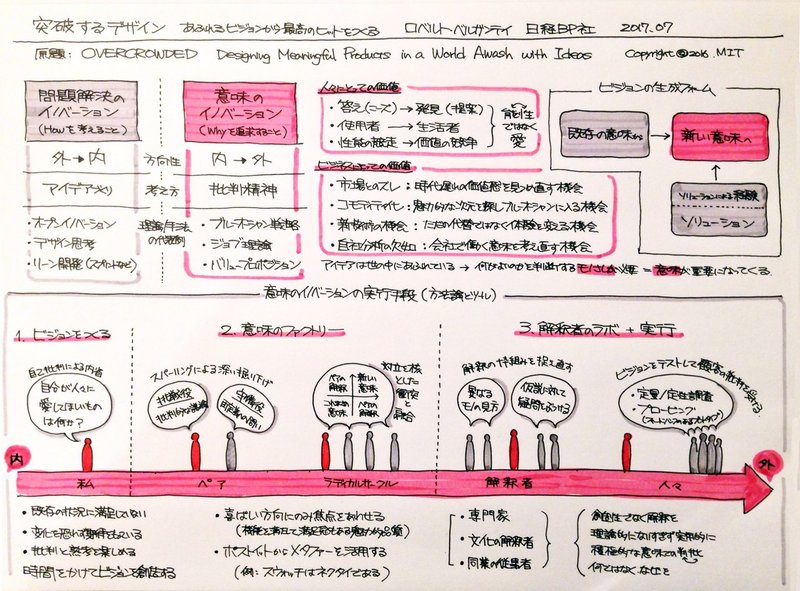 突破するデザイン あふれるビジョンから最高のヒットをつくる ロベルト・ベルガンティ 日経BP社 2017.07
原題: OVERCROWDED Designing Meaningful Products in a World Awash with Ideas Copyright @2016.MIT
問題解決の
イノベーション
(Howを考えること)
意味の
イノベーション
(Whyを追求すること)
外→内 方向性 内→外
アイデア作り 考え方 批判精神
・オープンイノベーション
・デザイン思考
・リーン開発(スプリントなど)
理論/手法
の代表例
・ブルーオーシャン戦略
・ジョブ理論
・バリュープロポジション
人々にとっての価値
・答え(ニーズ)→発見(提案)
・使用者→生活者
・性能の競走→価値の競争
可能性
ではなく
愛
ビジネスにとっての価値
・市場とのズレ:時代遅れの価値感を見つめ直す機会
・コモディティ化:魅力的な次元を探しブルーオーシャンに入る機会
・新技術の機会:ただの代替ではなく体験を変える機会
・自社分析の欠如:会社で働く意味を考え直す機会
アイデアは世の中にあふれている → 何がよいのかを判断する
= 意味が重要になってくる
ビジョンの生成フォーム
既存の意味から
新しい意味の
ソリューションによる経験
ソリューション
意味のイノベーションの実行手段(方法論とツール)
1. ビジョンをつくる
自己批判による内省
自分が人々に
愛してほしいものは
何か?
2. 意味のファクトリー
スパーリングによる深い掘り下げ
挑戦役
批判的な議論
守備役
ペアの
解釈
新しい
意味
これまでの
意味
ペアの
解釈
対立を核
とした
衝突と
融合
3. 解釈者のラボ + 実行
解釈の枠組みを捉え直す
異なる
モノの見方
仮説に対して
疑問をぶつける
ビジョンをテストして
・定量/定性調査
・プロービング
内
私
ペア
ラディカルサークル
解釈者
人々
外
・既存の状況に満足していない
・変化を恐れず期待をしている
・批判と熟考を楽しめる
時間をかけてビジョンを創造する
・喜ばしい方向にのみ焦点をあわせる
・ポストイットからメタファーを活用する
(例:スウォッチはネクタイである)
・専門家
・文化の解釈者
・同業の従業者
創造性でなく解釈を
理論的になりすぎず実用的に
積極的な意味での批判を
何でではなく、なぜを